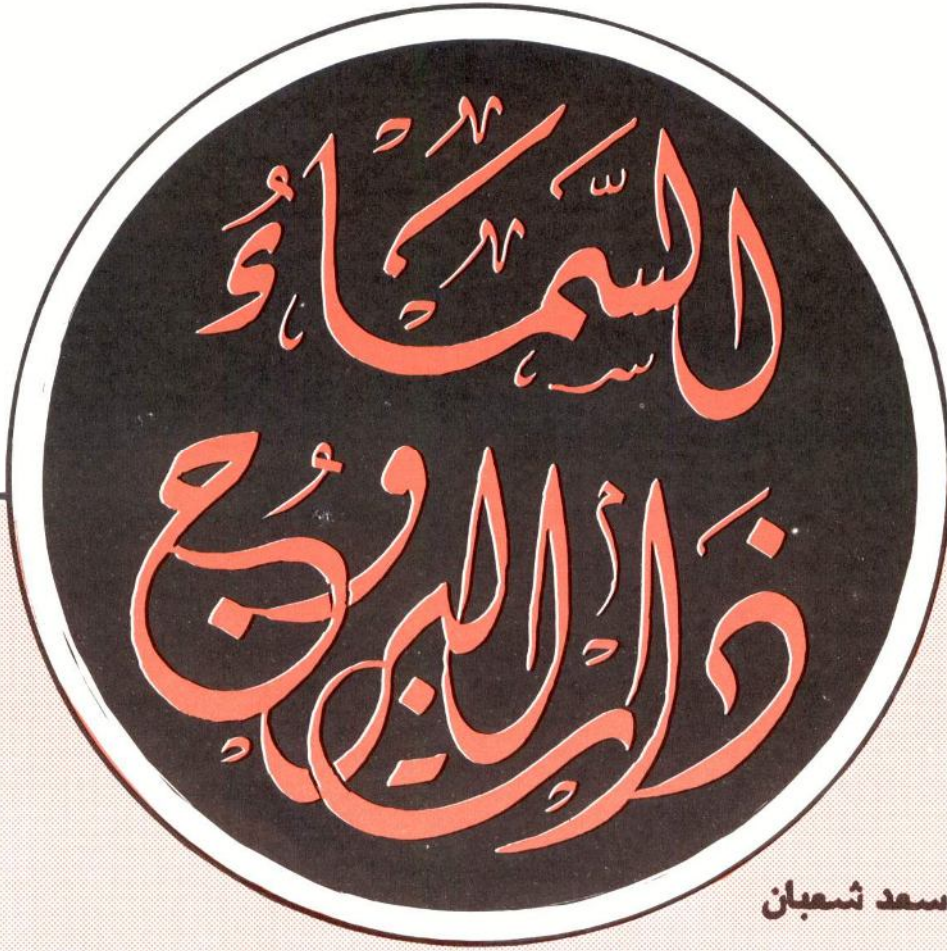 السَّمَاءُ
ذَات البُروج
سعد شعبان